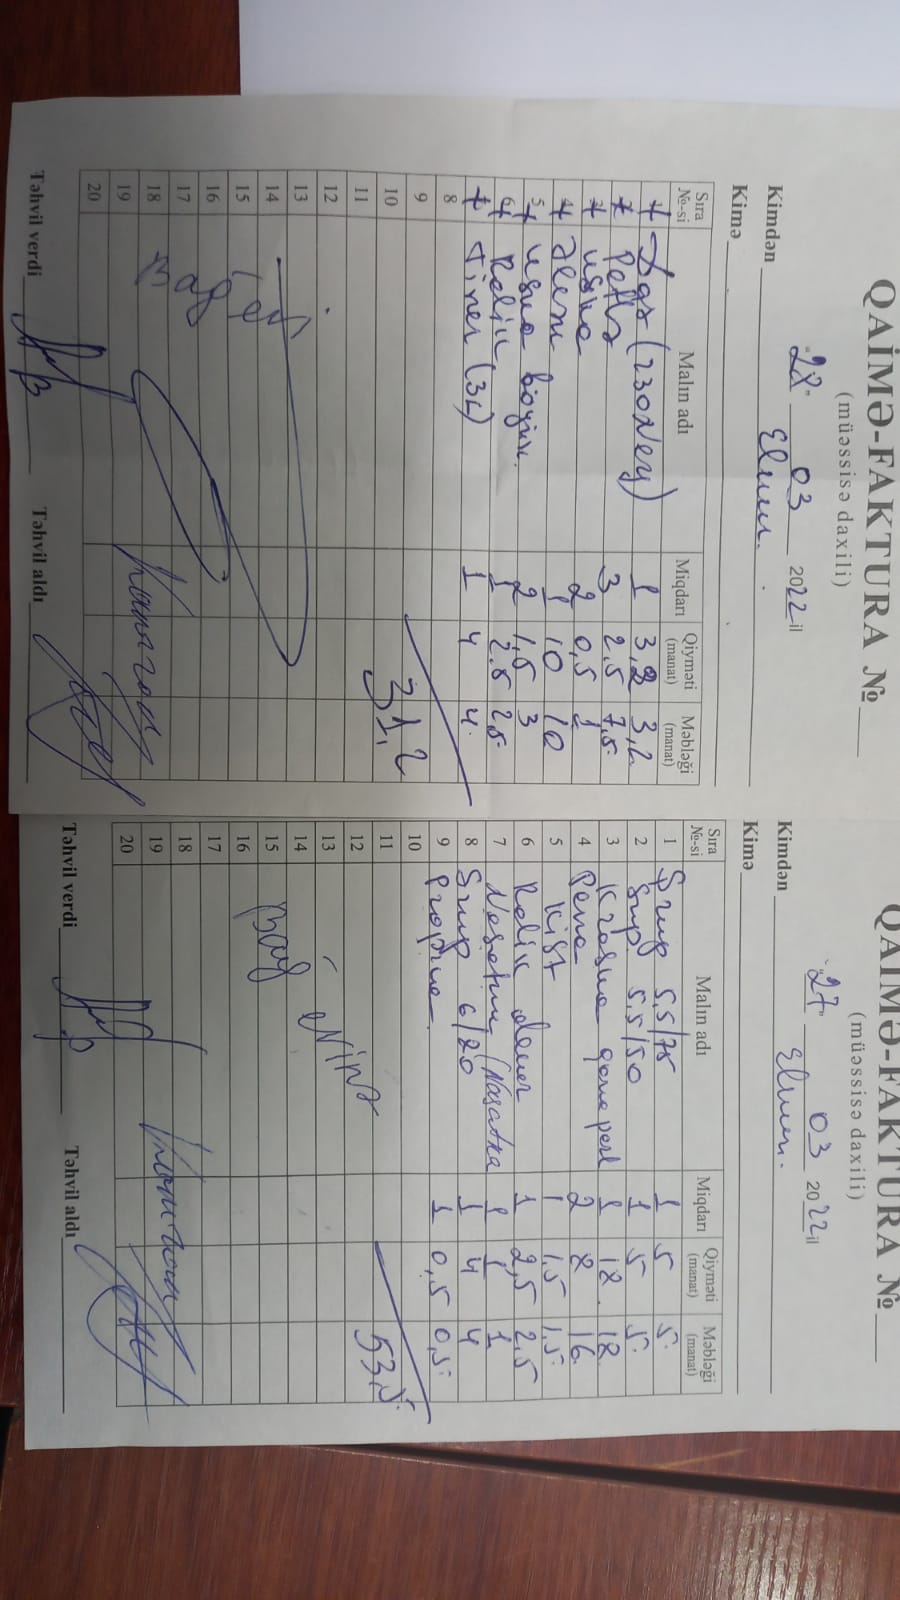 QAİMƏ-FAKTURA №
(müəssisə daxili)
"28" 03 2022 il
Kimdən Elmin.
Kimə
Sıra №-si Malın adı Miqdarı Qiyməti (manat) Məbləği (manat)
1 (230 1 3,2 3,2
2 Petlə 3 2,5 7,5
3 2 0,5 1
4 1 10 10
5 2 1,5 3
6 Rolik 1 2.5 2.5
7 Tiner (3L) 1 4 4
8
9
10 31,2
11
12
13
14
15
16
17
18
19
20
Təhvil verdi Təhvil aldı
QAİMƏ-FAKTURA №
(müəssisə daxili)
"27" 03 2022 il
Kimdən Elmin.
Kimə
Sıra №-si Malın adı Miqdarı Qiyməti (manat) Məbləği (manat)
1 Şrup 5,5/75 1 5 5
2 Şrup 5,5/50 1 5 5
3 Kraska 1 18 18
4 Pena 2 8 16
5 Kist 1 1,5 1,5
6 Rolik 1 2,5 2,5
7 (Nasatka 1 1 1
8 Şrup 6/20 1 4 4
9 1 0,5 0,5
10
11 53,5
12
13
14
15
16
17
18
19
20
Təhvil verdi Təhvil aldı